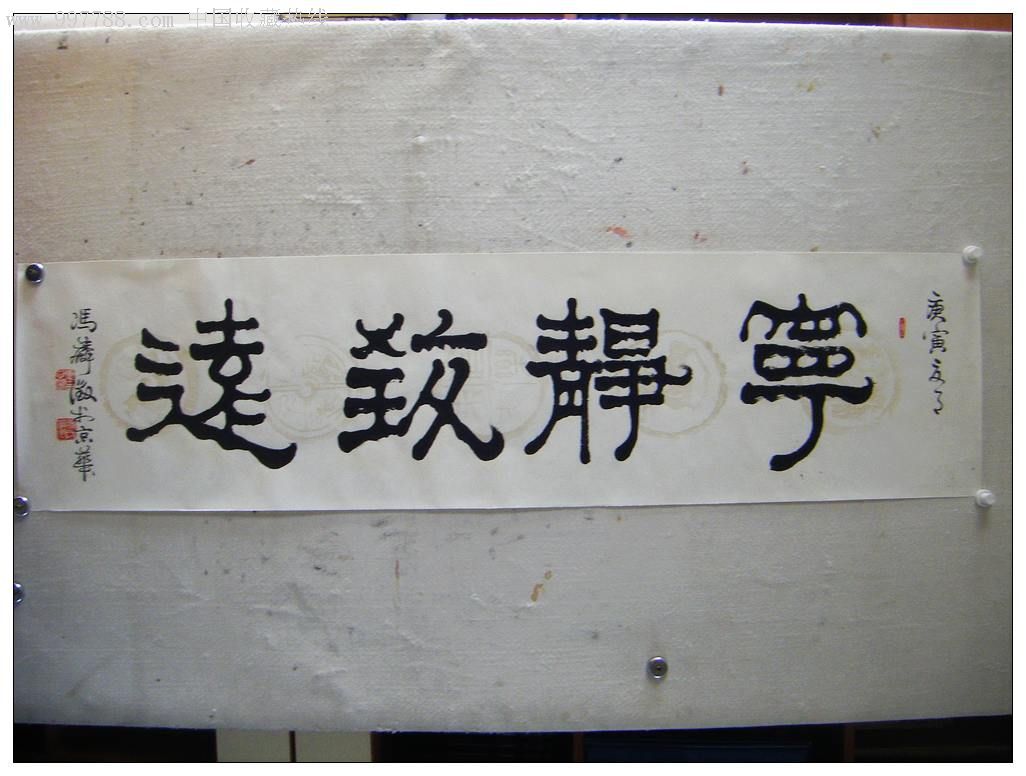 www.997788.com 中国收藏热线
庚寅夏月
寧靜致遠
馮 於京華